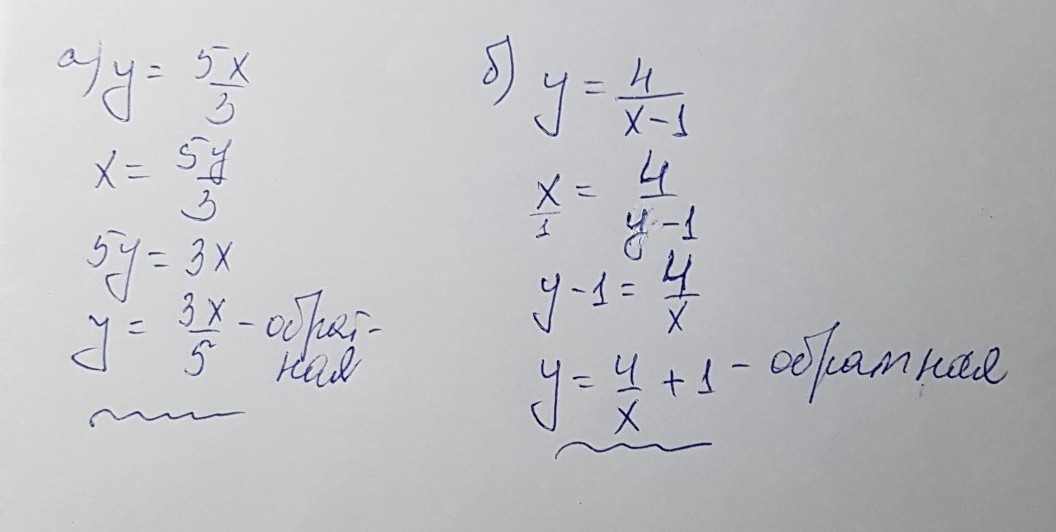 а) y = 5x/3
x = 5y/3
5y = 3x
y = 3x/5 - обрат-
ная
б) y = 4/(x-1)
x/1 = 4/(y-1)
y-1 = 4/x
y = 4/x + 1 - обратная